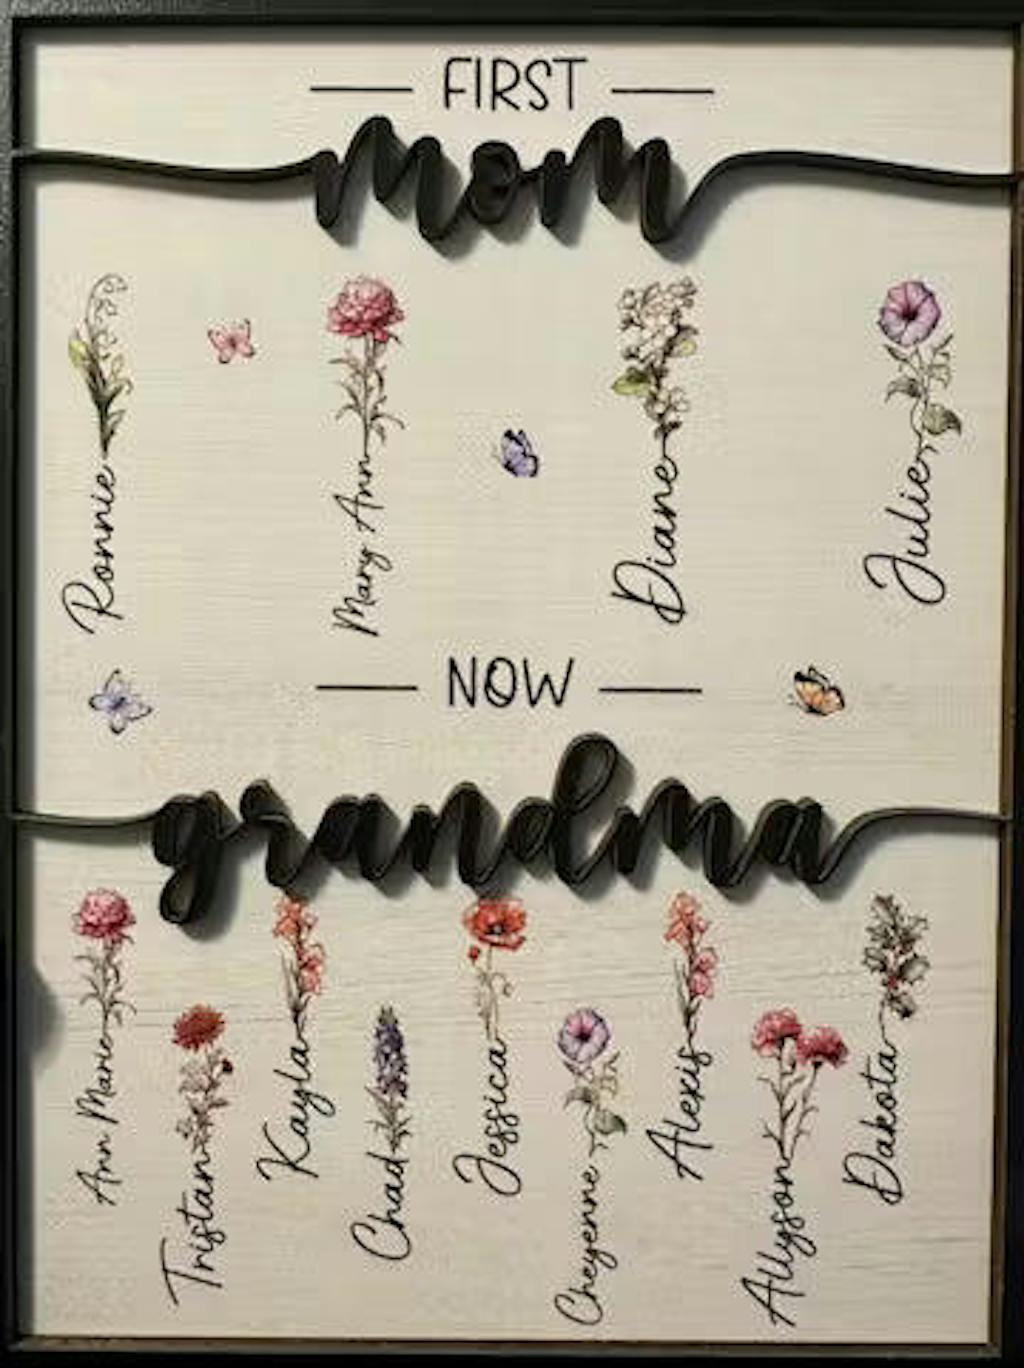 FIRST
mom
Ronnie
Mary Ann
Diane
Julie
NOW
grandma
Ann Marie
Tristan
Kayla
Chad
Jessica
Cheyenne
Alexis
Allyson
Dakota